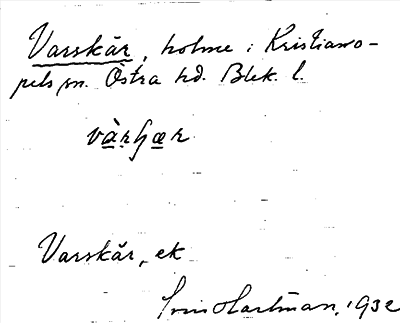 Varskär, holme i Kristiano-
pels sn. Östra hd. Blek. l.
Varskär, ek
Hartman, 1932